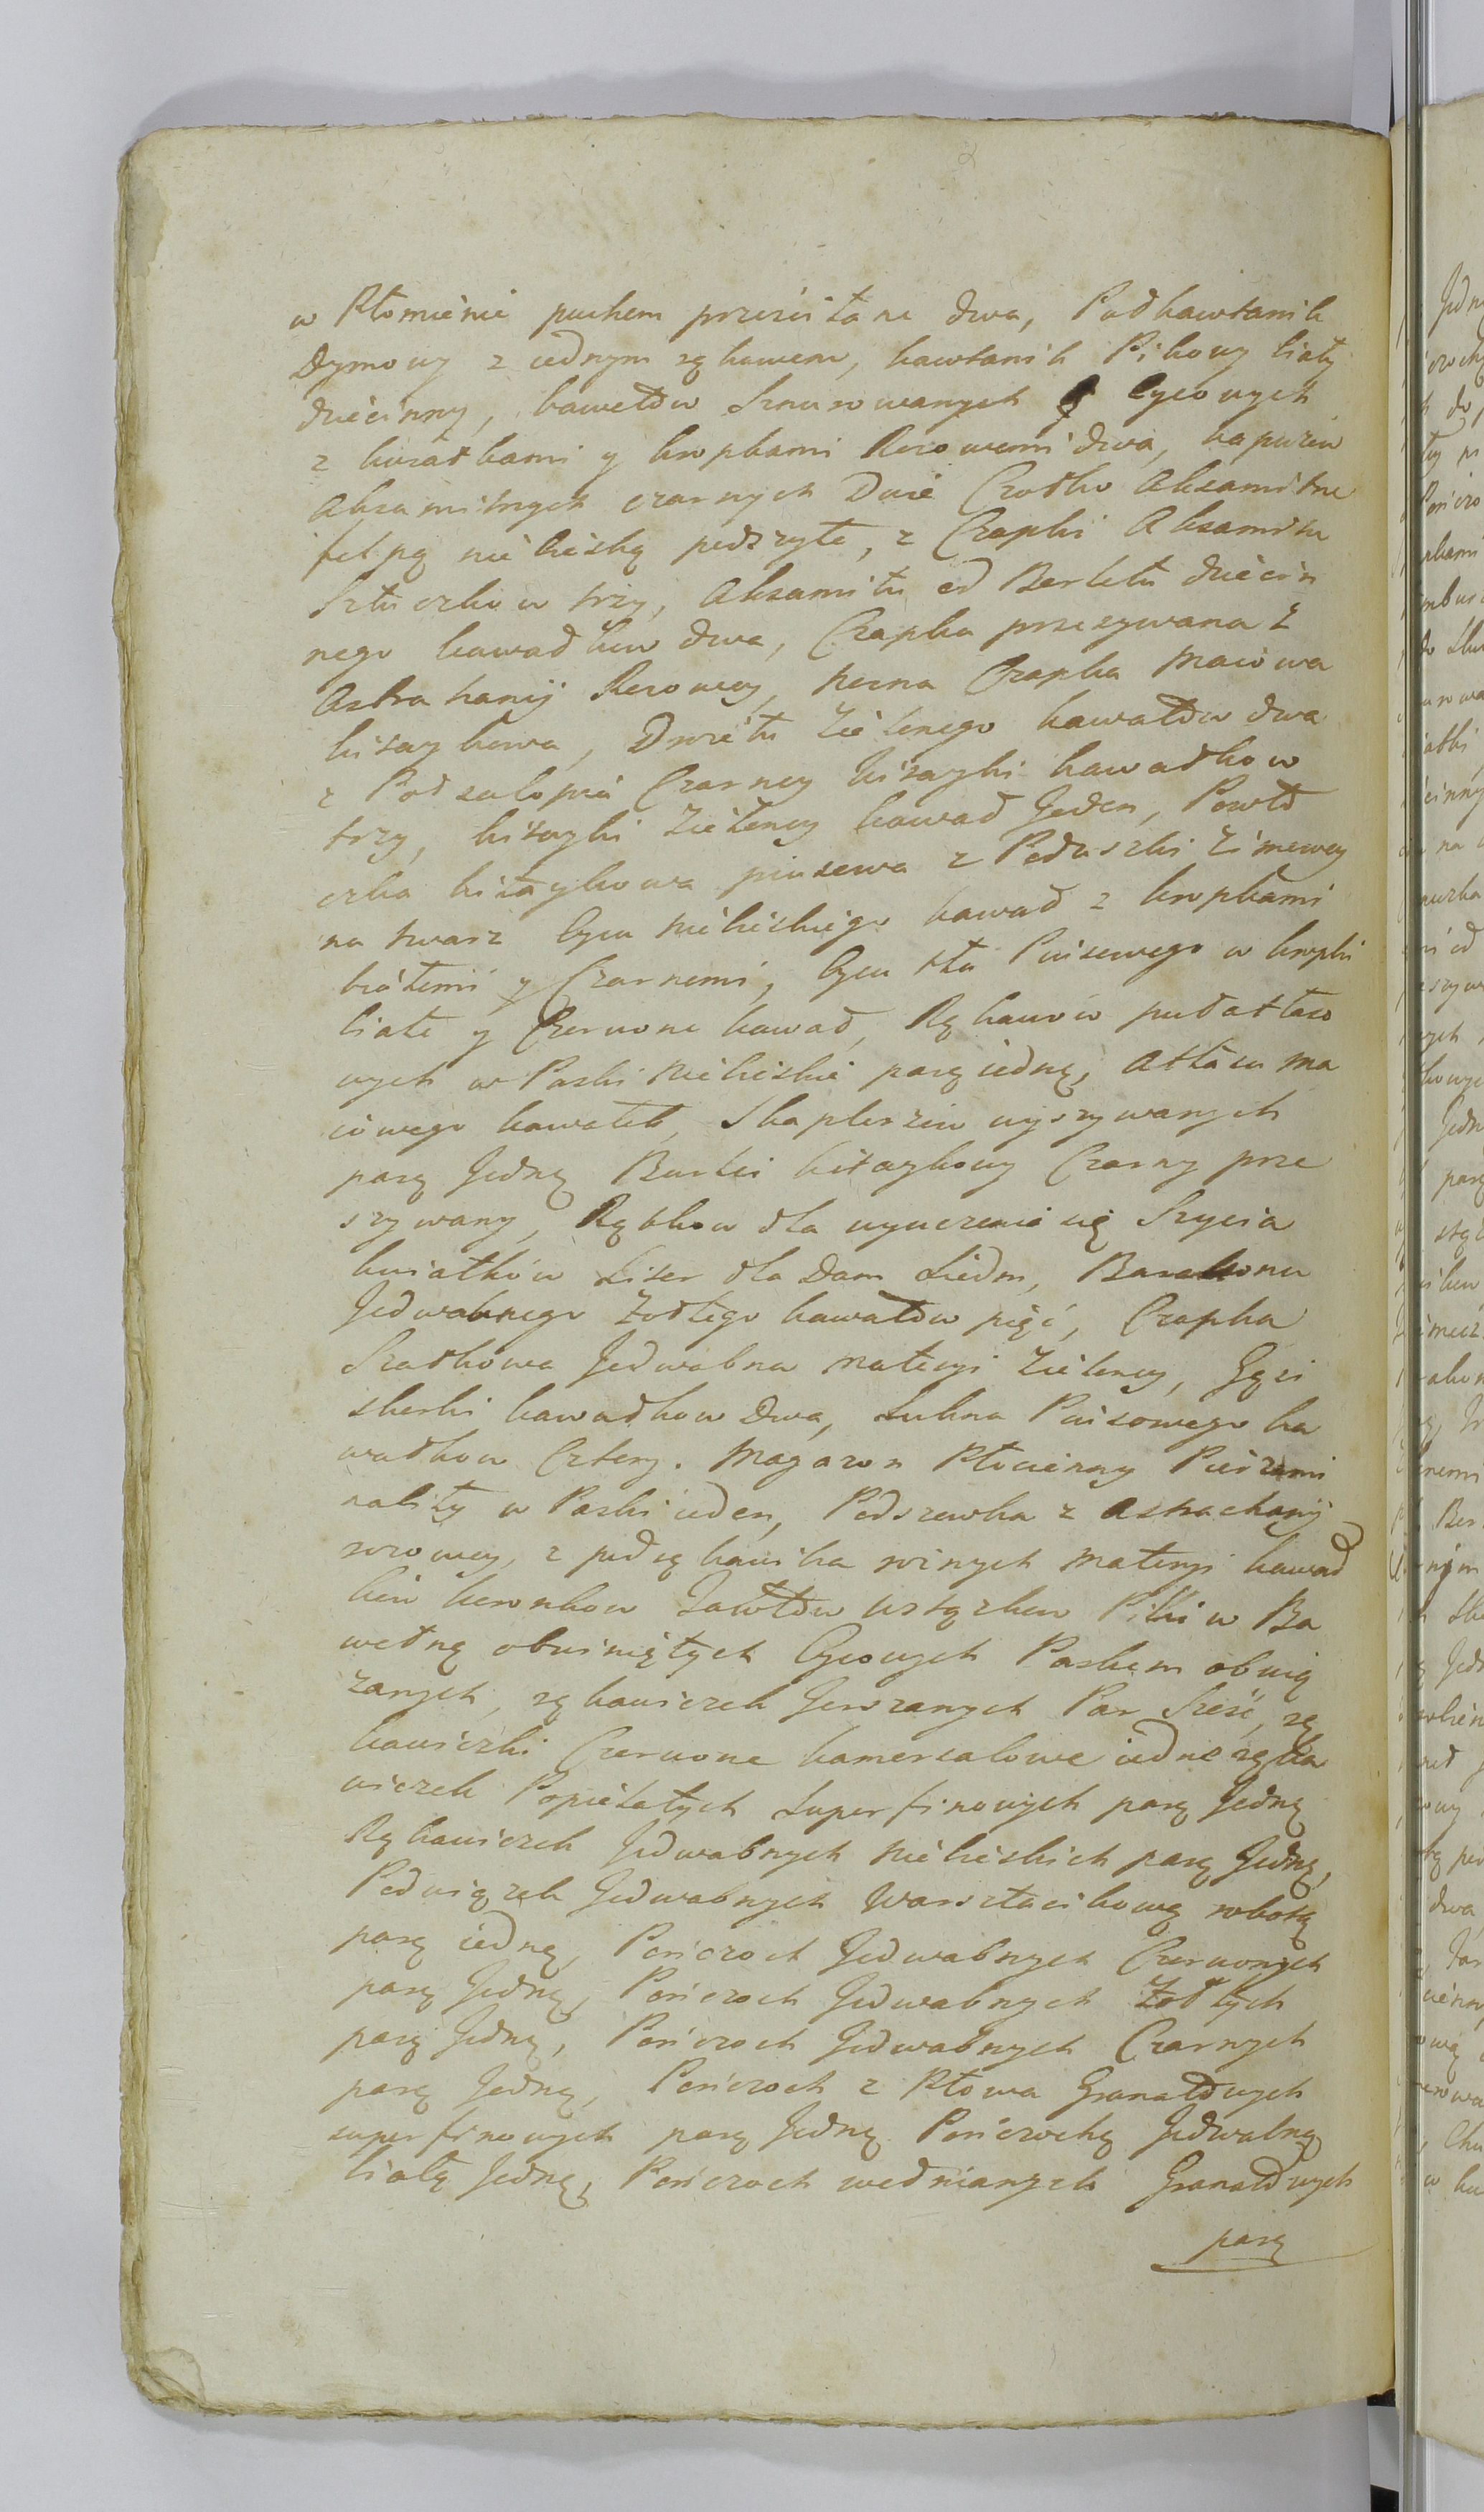 w Płomienie puchem przeźśitane dwa, Podkawtanik
Dymowy z iednym rękawem, kawtanik Pikowy biały
dziecinny, kawełów Sznurowanych Cycowych
z kwiatkami y kropkami Rózowemi dwa, kapuzów
Aksamitnych czarnych Dwie Czołko Aksamitne
felpą niebieską podszyte, z Czapki Aksamitu
Sztuczków trzy, Aksamitu od Berletu dziecin
nego kawałków dwa, Czapka przeszywana z
Astrahanij Rózowey, Czapka Maiowa
kitaykowa, Dwoietu Zielonego kawałów dwa
z Podsalopia Czarney kitayki kawałkow
trzy, kitayki Zieloney kawał Jeden, Powło
czka kitaykowa piusowa z Poduszki Zimowey
na twarz Cycu Niebieskiego kawał z kropkami
białemi y Czarnemi, Cycu tła Piusowego w kropki
białe y Czerwone kawał, Rękawów pułatłaso
wych w Paski Niebieskie parę iedną, Atłasu Ma
iowego kawałek, Szkaplerzów wyszywanych
parę Jedną kitaykowy Czarny prze
szywany, Rąbkow dla wyuczenia się Szycia
kwiatków Liter dla Dam Siedm, Barakonu
Jedwabnego Żołtego kawałów pięć, Czapka
Siatkowa Jedwabna materyi Zieloney, Gęsi
skorki kawałkow Dwa, Sukna Piusowego ka
wałkow Cztery. Magazon Płocienny Pierzami
nality w Paski ieden, Podszewka z Astrachanij
rozowey, z pod rękawika roznych materyi kawał
kow koronkow wstążkow Piłki w Ba
wełnę obwiniętych Cycowych Paskiem obwią
zanych, rękawiczek Gemzanych Par Szesć, rę
kawiczki Czerwone kamerzalowe iedne ręka
wiczek Popielatych Superfinowych parę Jedną
Rękawiczek Jedwabnych Niebieskich parę Jedną,
Podwiązek Jedwabnych Warsztacikową robotą
parę iedną, Pończoch Jedwabnych Czerwonych
parę Jedną, Pończoch Jedwabnych Żołtych
parę Jedną, Pończoch Jedwabnych Czarnych
parę Jedną, Pończoch z Płowa Granatowych
superfinowych parę Jedną Pończochę Jedwabną
białą Jedną, Pończoch wełnianych Granatowych
parę